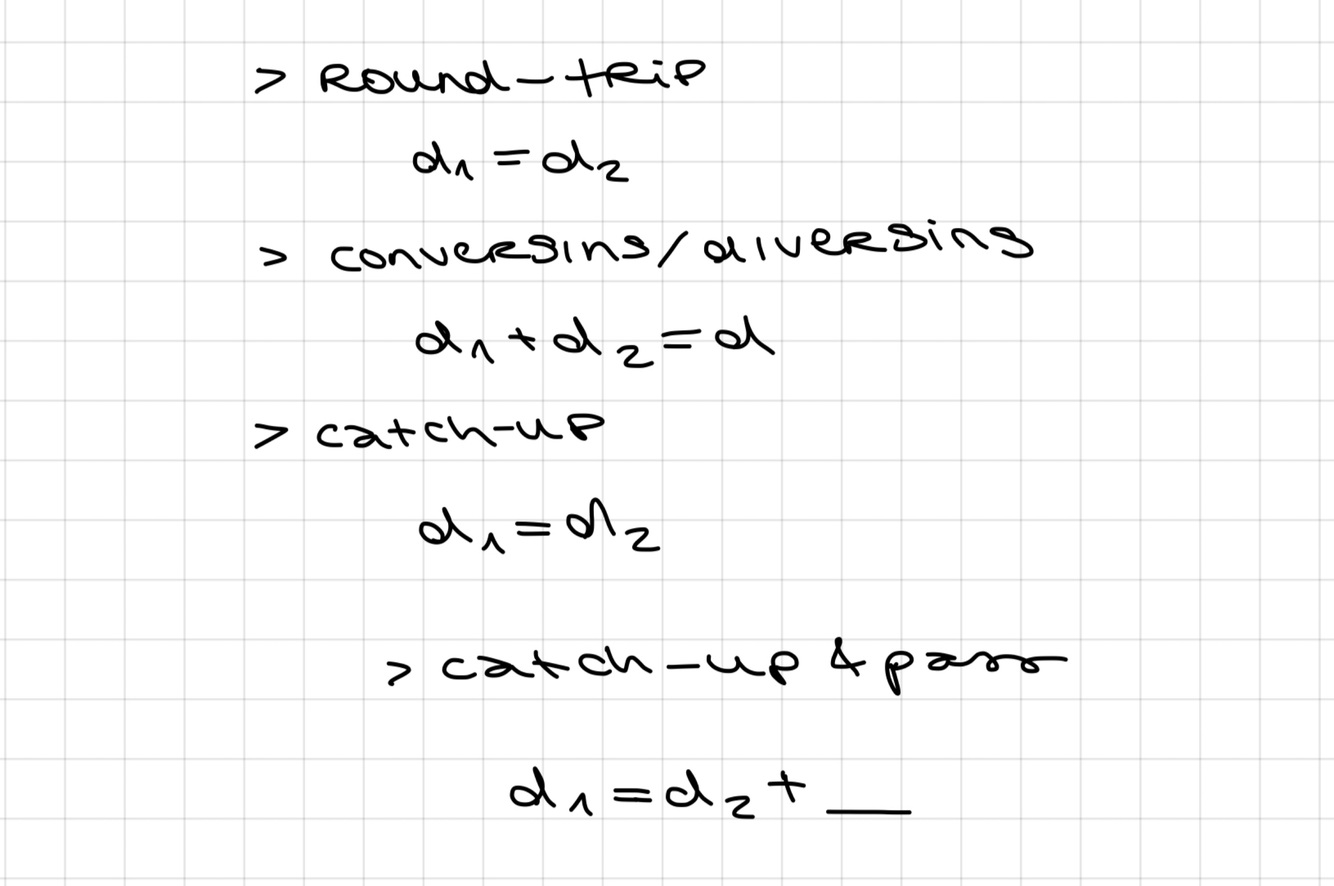 > Round-trip
d₁ = d₂
> converging/diverging
d₁ + d₂ = d
> catch-up
d₁ = d₂
> catch-up & pass
d₁ = d₂ + ___